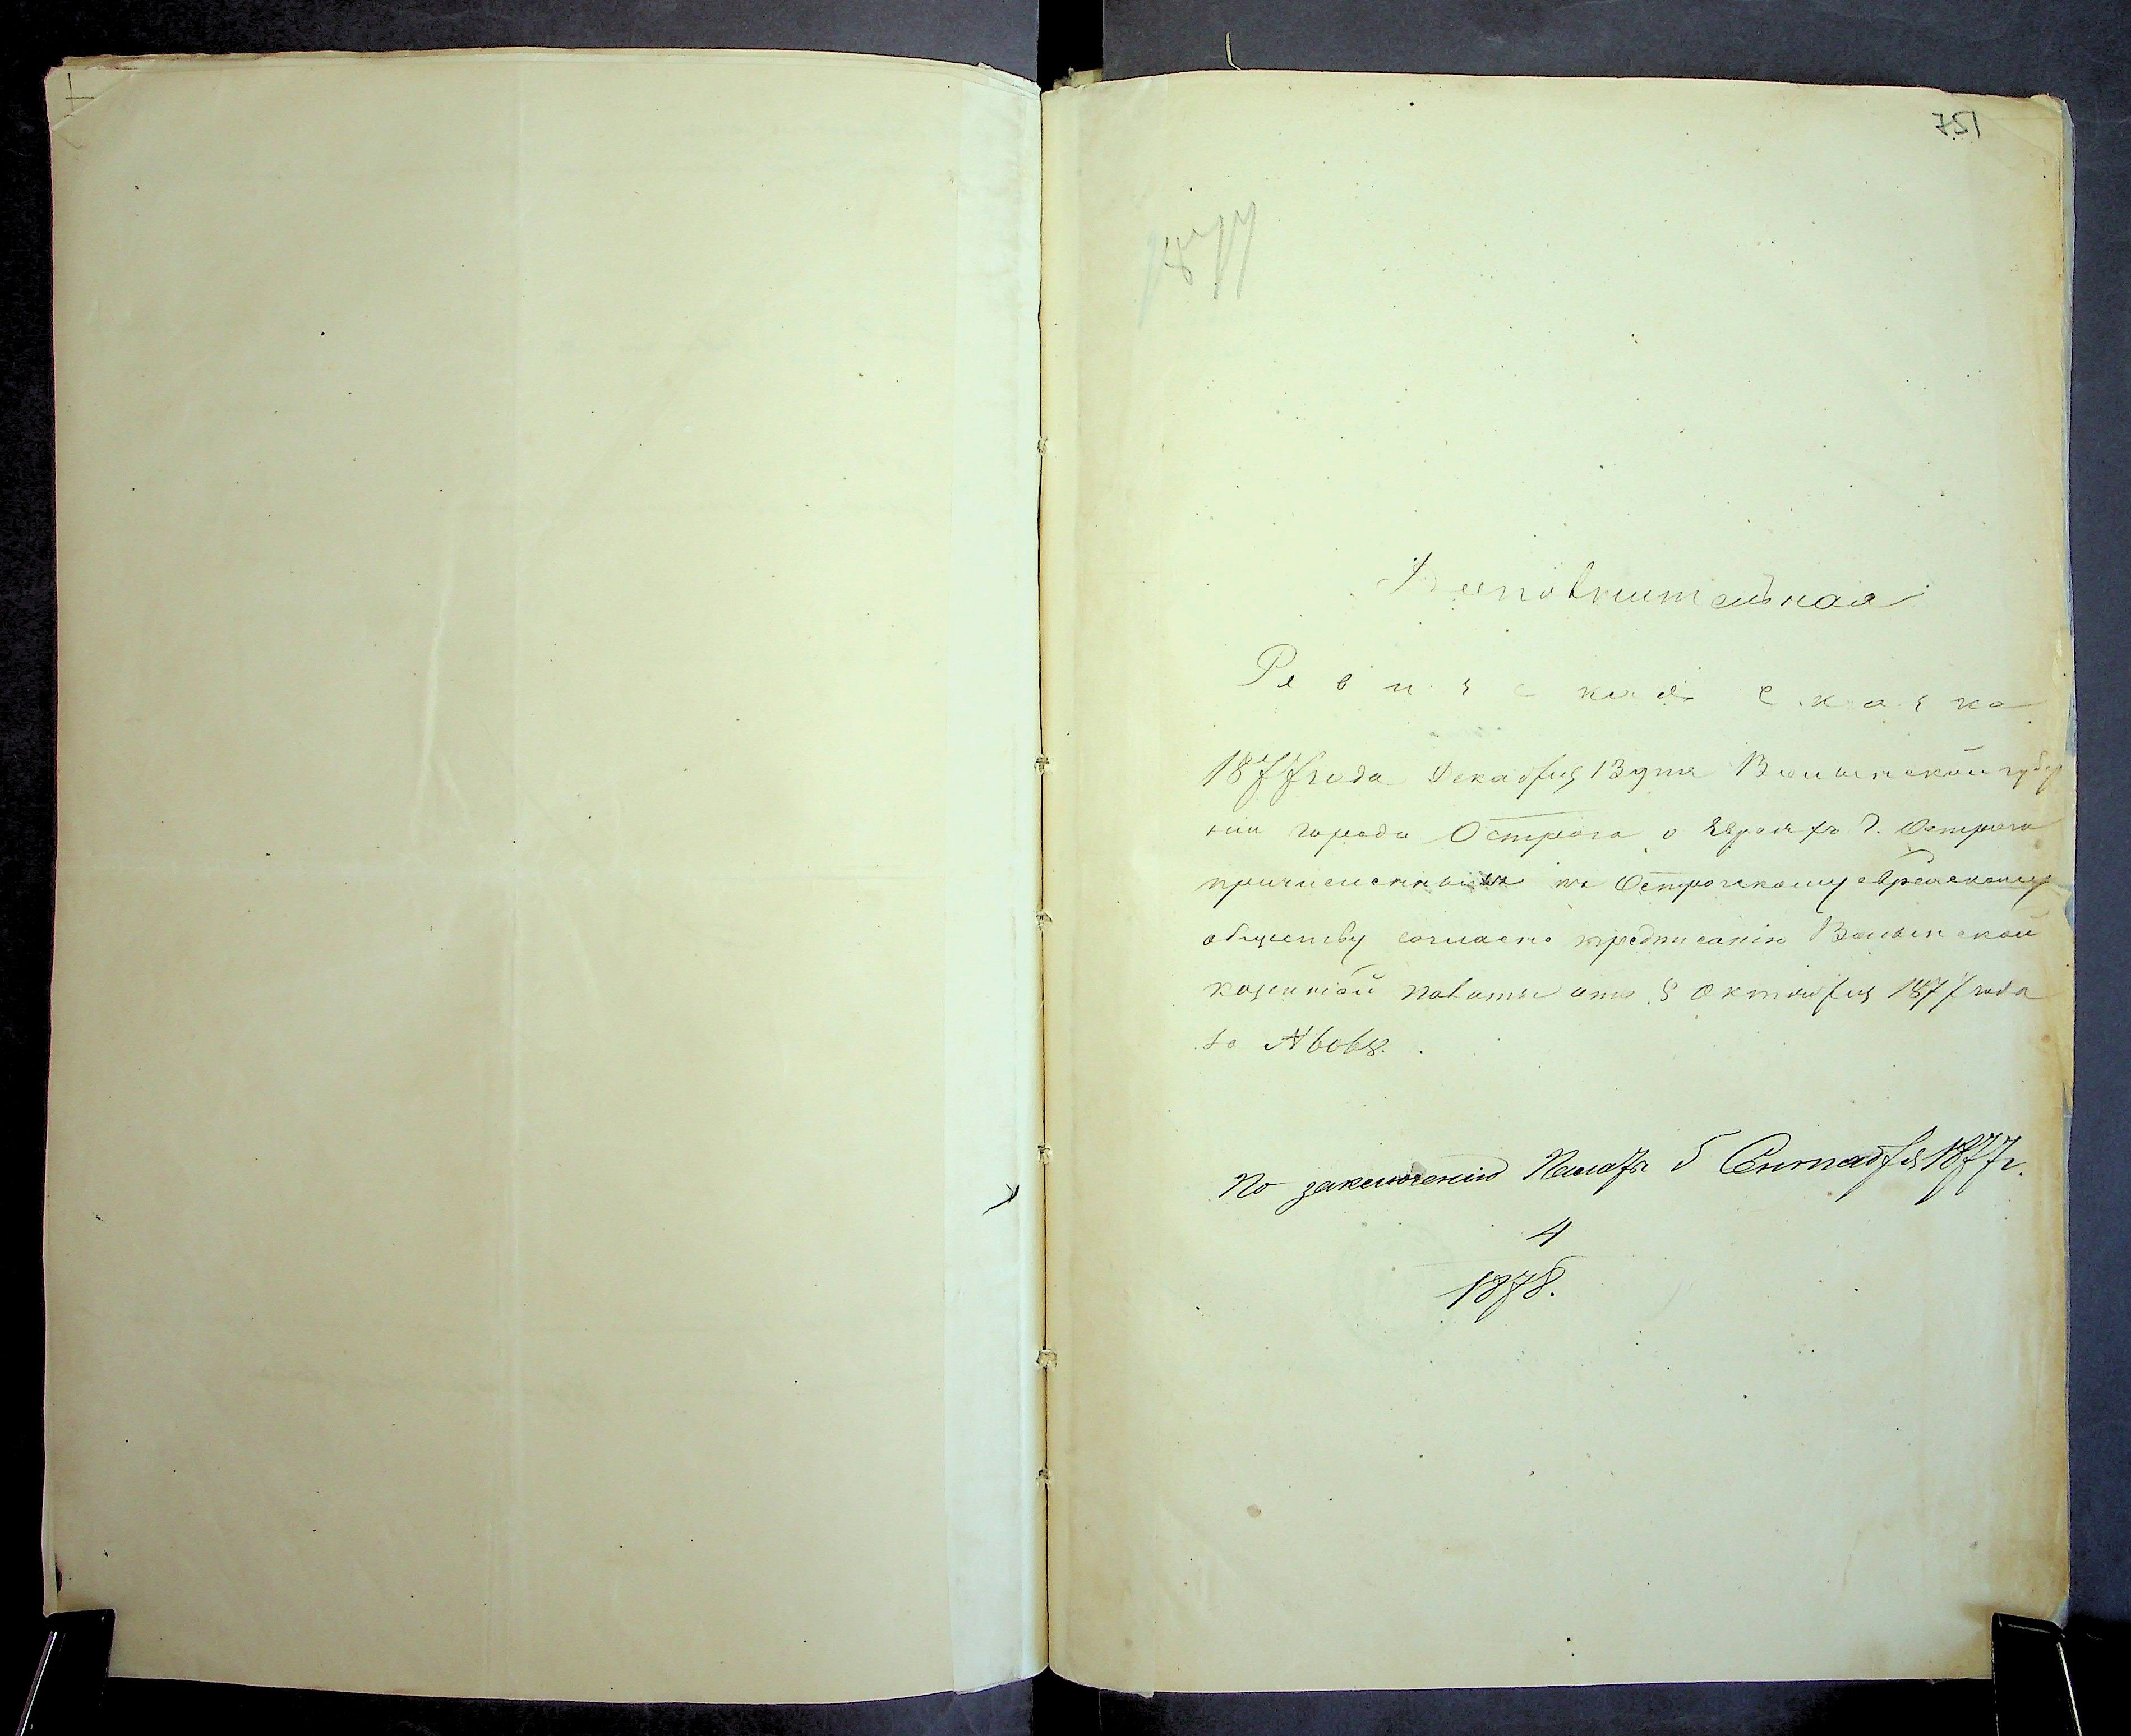 751
1877
Дополнительная
Ревизская сказка
1877 года Декабря 13 дня Волынской губер
ніи города Острога о Евреяхъ г. Острога
причисленныхъ къ Острожскому еврейскому
обществу согласно предписанію Волынской
казенной палаты отъ 8 Октября 1877 года
за №
По заключенію Палаты 5 Сентября 1877 г.
4
1878.